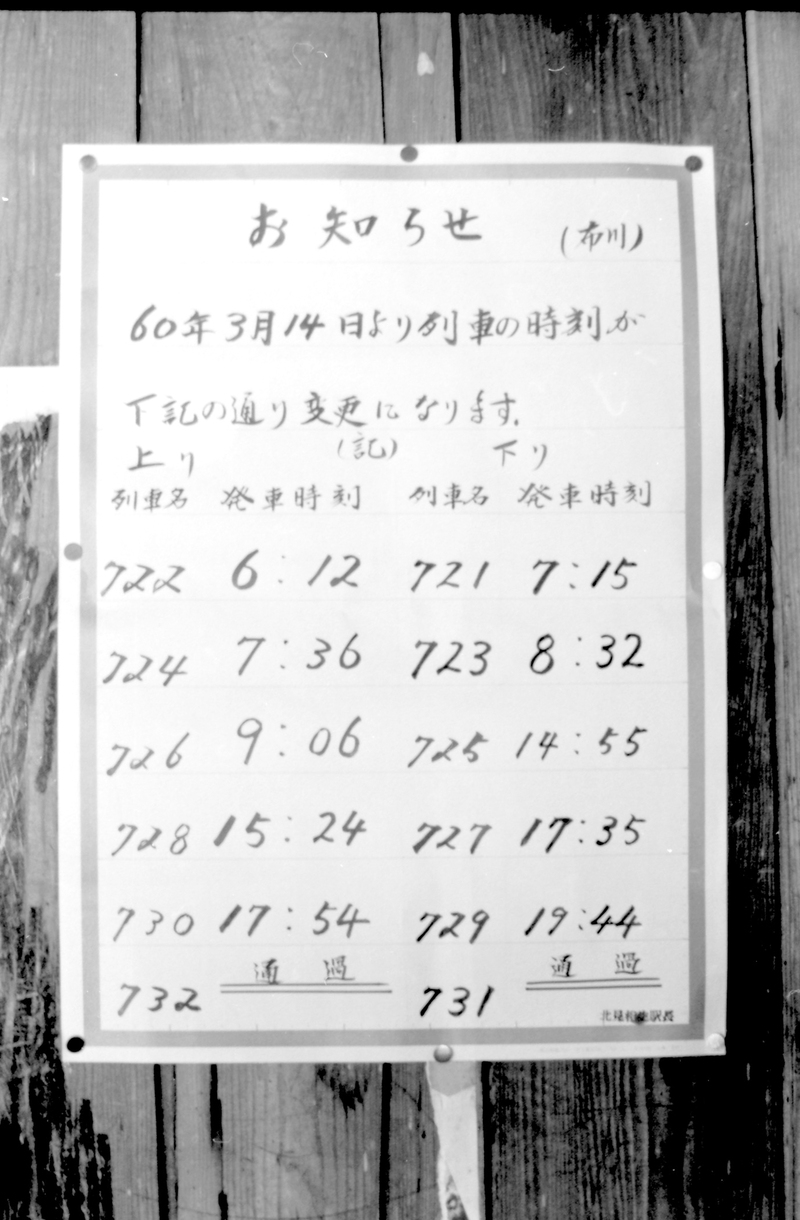 お知らせ (布川)
60年3月14日より列車の時刻が
下記の通り変更になります。
(記)
上り 下り
列車名 発車時刻 列車名 発車時刻
722 6:12 721 7:15
724 7:36 723 8:32
726 9:06 725 14:55
728 15:24 727 17:35
730 17:54 729 19:44
732 通過 731 通過
北見相生駅長